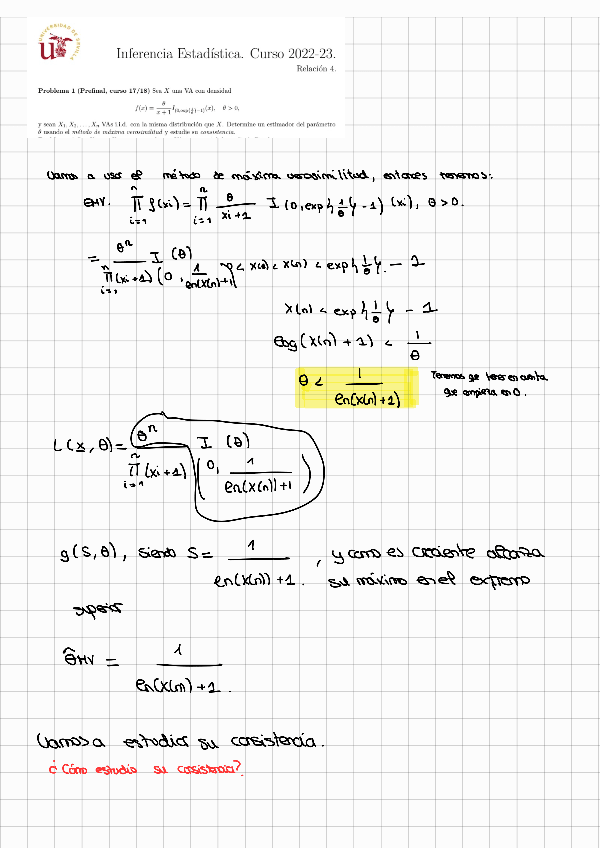 UNIVERSIDAD DE SEVILLA
Inferencia Estadística. Curso 2022-23.
Relación 4.
Problema 1 (Prefinal, curso 17/18) Sea X una VA con densidad
f(x) = θ/(x+1) I_(0,exp{1/θ}−1)(x), θ > 0,
y sean X₁, X₂, . . . , Xₙ VAs i.i.d. con la misma distribución que X. Determine un estimador del parámetro
θ usando el método de máxima verosimilitud y estudie su consistencia.
Vamos a usar el método de máxima verosimilitud, entonces tenemos:
EMV. ∏_{i=1}^{n} f(xi) = ∏_{i=1}^{n} θ/(xi+1) I (0, exp{1/θ} − 1) (xi), θ > 0.
= θⁿ/∏_{i=1}^{n}(xi+1) I_(0, 1/(ln(X(n))+1)) (θ)
0 < X(1) < X(n) < exp{1/θ} − 1
X(n) < exp{1/θ} − 1
log(X(n) + 1) < 1/θ
θ < 1/(ln(X(n)+1))
Tenemos que tener en cuenta
que empieza en 0.
L(x, θ) = θⁿ/∏_{i=1}^{n}(xi+1) I_(0, 1/(ln(X(n))+1)) (θ)
g(S, θ), siendo S = 1/(ln(X(n))+1) , y como es creciente alcanza
su máximo en el extremo
superior
θ̂MV = 1/(ln(X(n)+1.
Vamos a estudiar su consistencia.
¿Cómo estudio su consistencia?